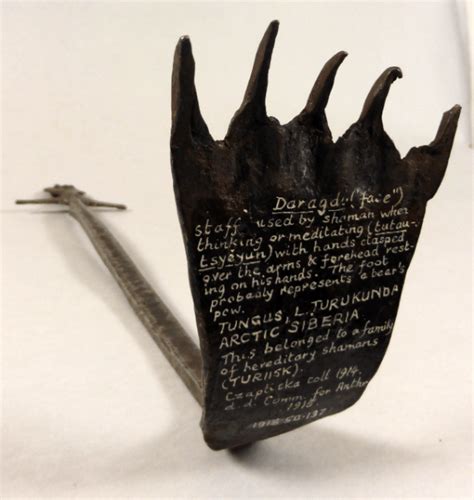 Daragdi ("face")
staff used by shaman when
thinking or meditating (tutau-
tsyëyun) with hands clasped
over the arms & forehead rest-
ing on his hands. The foot
probably represents a bear's
paw.
TUNGUS, L. TURUKUNDA
ARCTIC SIBERIA
This belonged to a family
of hereditary shamans
(TURIISK).
Czaplicka coll 1914.
d.d. Comm. for Anthr
1918.